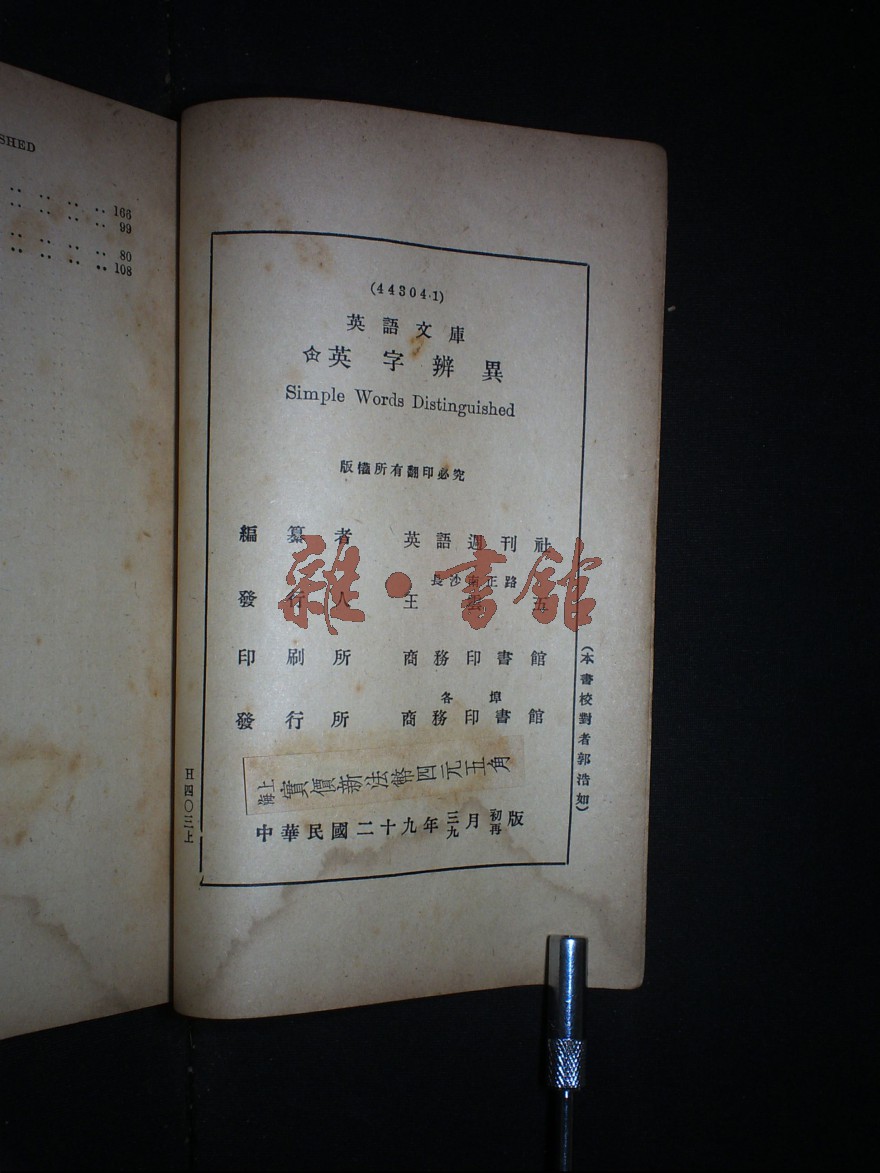 SHED
.. .. .. .. 166
.. .. .. .. 99
.. .. .. .. 80
.. .. .. .. 108
(44304·1)
英語文庫
英字辨異
Simple Words Distinguished
版權所有翻印必究
編纂者 英語週刊社
長沙南正路
發行人 王雲五
印刷所 商務印書館
各埠
發行所 商務印書館
上海實價新法幣四元五角
中華民國二十九年三月初版
九再
(本書校對者郭浩如)
H四〇三上
雜·書館